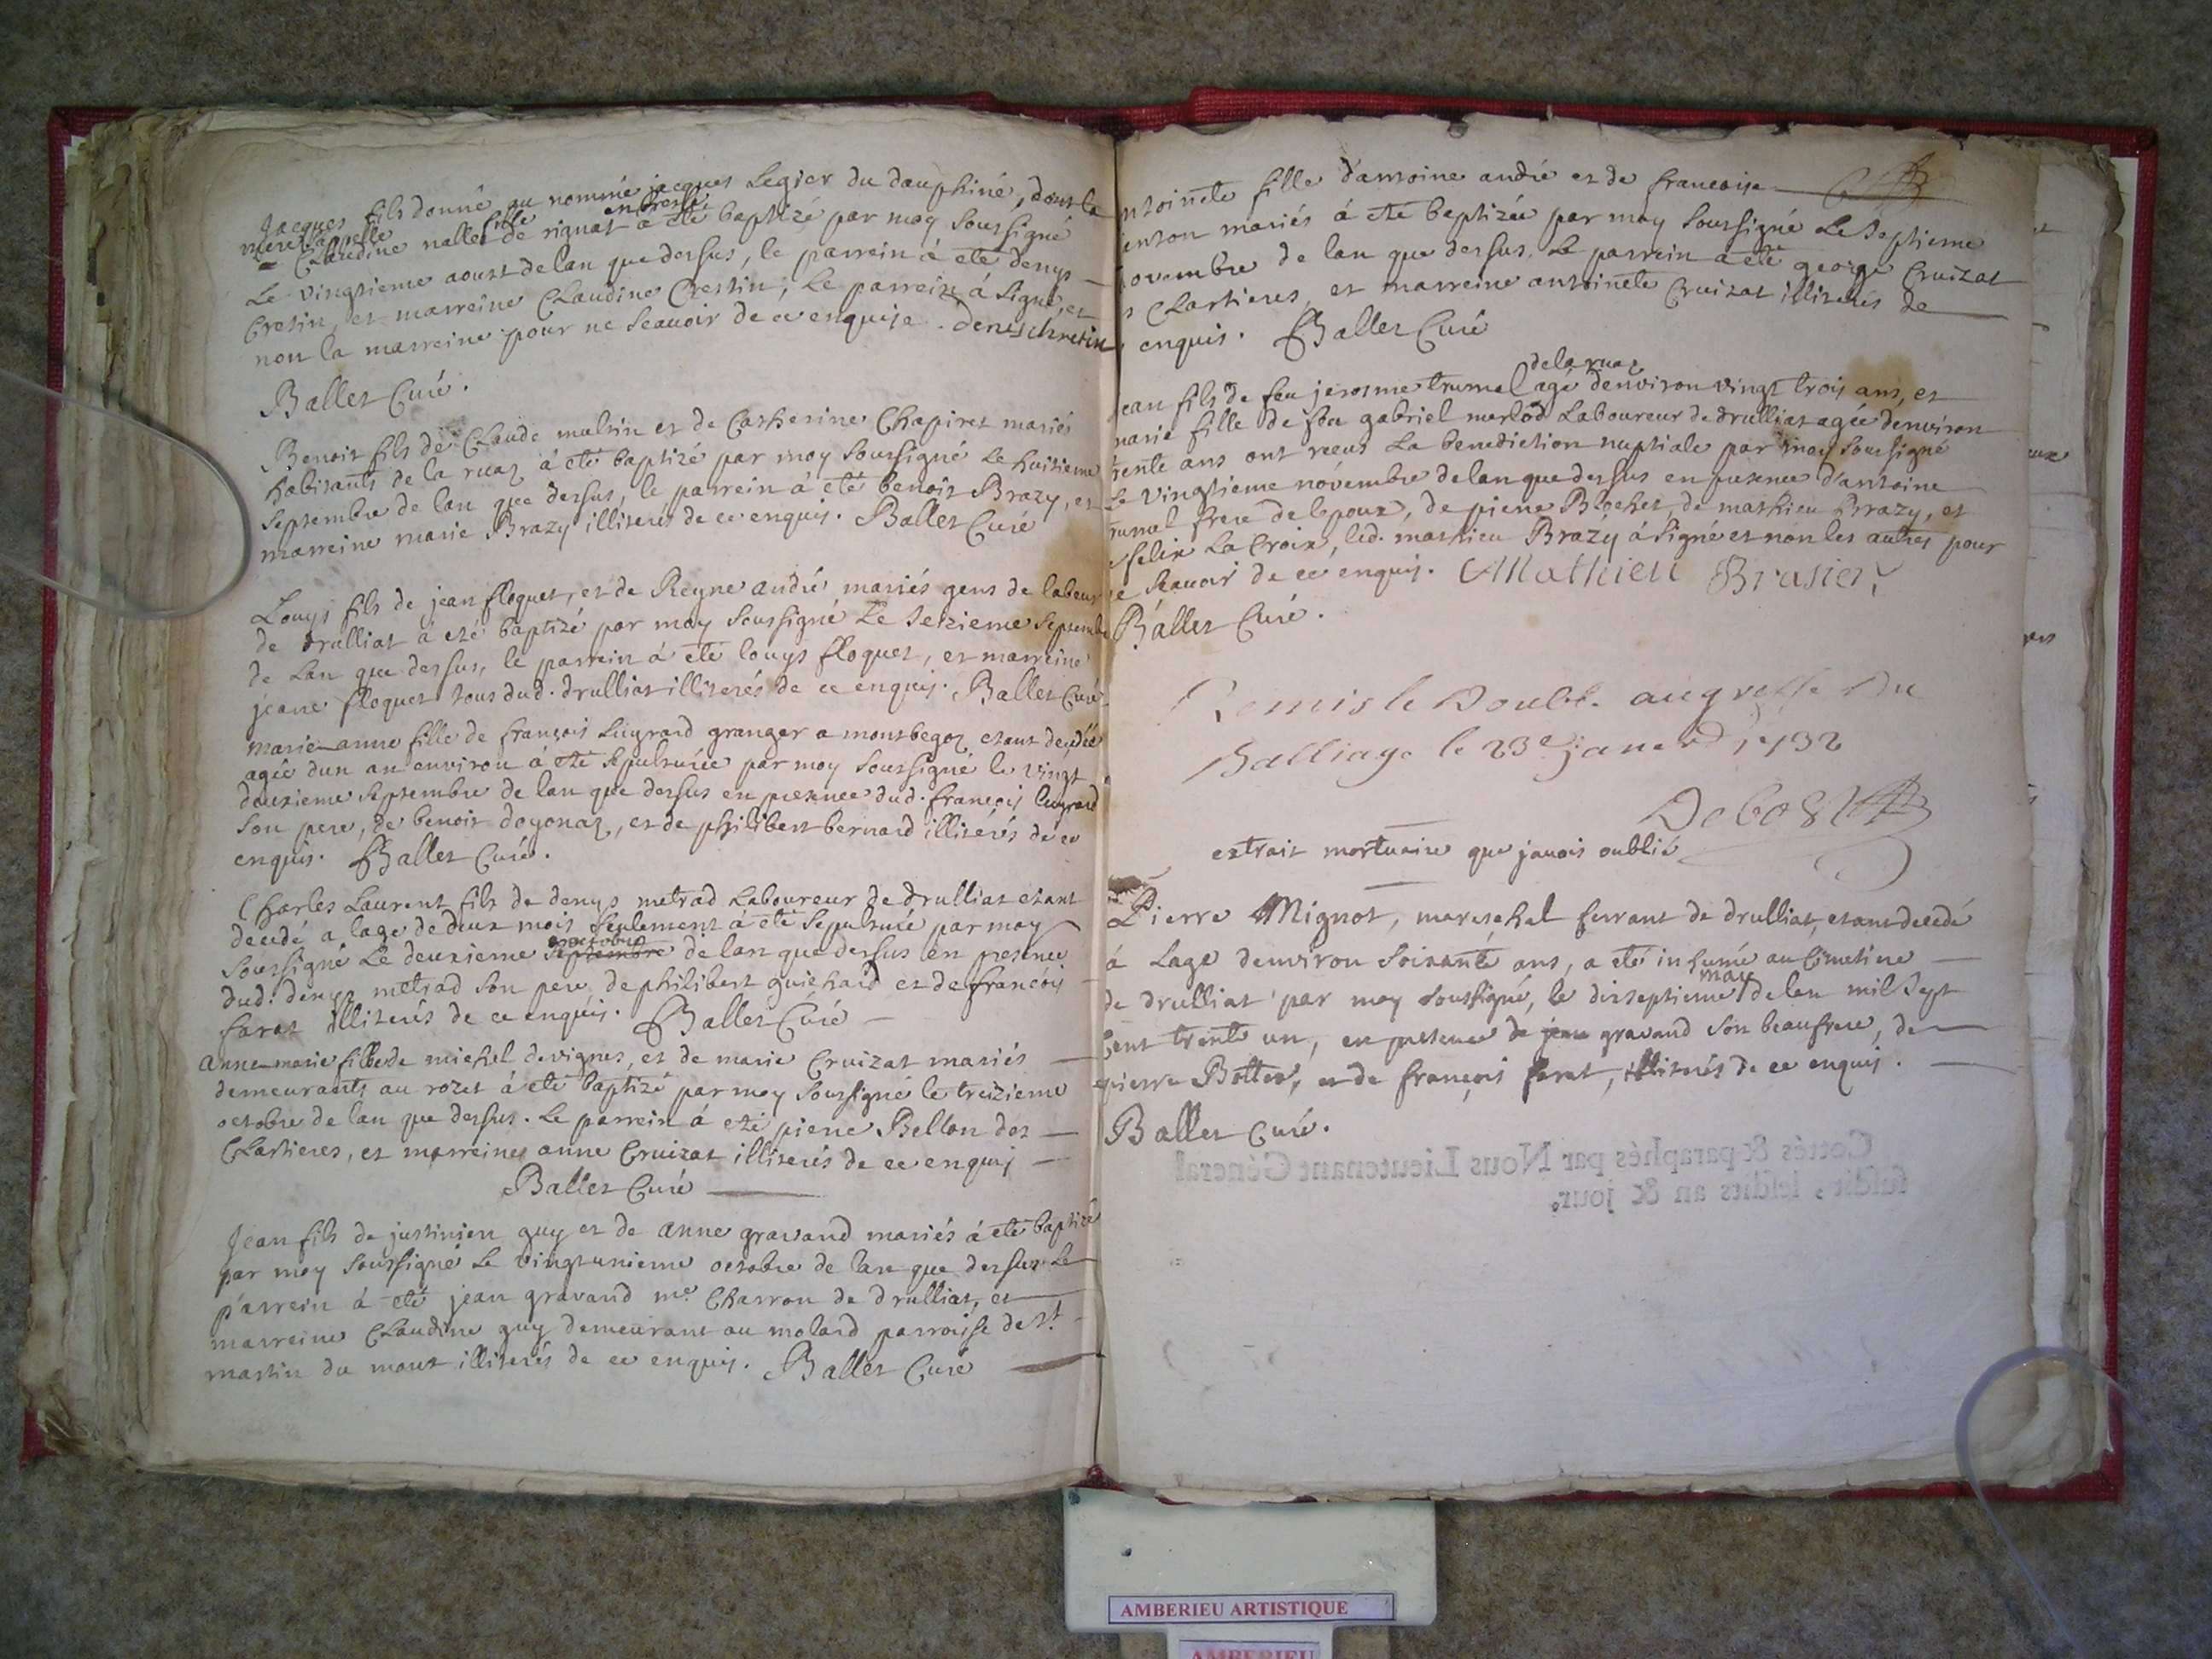 Jacques fils donné au nommé jacques Legier du dauphiné, dont la
mere s'appelle
Claudine nallet fille de rignat en bresse a été baptizé par moy soussigné
Le vingtieme aoust de lan que dessus, le parrein á eté denys
Cretin, et marreine Claudine Crestin, Le parrein á signé, et
non la marreine pour ne scauoir de ce enquise. denis chretin
Ballet Curé.
Benoit fils de Claude multin et de Catherine Chapiret mariés
habitants de la ruaz á eté baptizé par moy soussigné Le huitieme
septembre de lan que dessus, le parrein á eté benoit Brazy, et
marreine marie Brazy illiterés de ce enquis. Ballet Curé
Louys fils de jean floquet, et de Reyne andré mariés gens de labeur
de drulliat á eté baptizé par moy soussigné Le seizieme septembre
de Lan que dessus, le parrein á eté louys floquet, et marreine
jeane floquet tous dud. drulliat illiterés de ce enquis. Ballet Curé
marie anne fille de françois Lugrand granger a montbegoz etant decedée
agée dun an environ á eté sepulturée par moy soussigné le vingt
deuxieme septembre de lan que dessus en presence dud. françois lugrand
son pere, de benoit doyonaz, et de philibert bernard illiterés de ce
enquis. Ballet Curé.
Charles Laurent fils de denys metrad Laboureur de drulliat etant
decedé a lage de deux mois seulement á eté sepulturé par moy
soussigné Le deuxieme septembre octobre de lan que dessus en presence
dud. denys metrad son pere de philibert guichard et de françois
farat illiterés de ce enquis. Ballet Curé
anne marie fille de michel devignes, et de marie Cruizat mariés
demeurants au rozet á eté baptizé par moy soussigné le treizieme
octobre de lan que dessus. Le parrein á eté pierre Bellon des
Clartieres, et marreine anne Cruizat illiterés de ce enquis
Ballet Curé
Jean fils de justinien guy et de anne gravand mariés á eté baptizé
par moy soussigné Le vingt unieme octobre de lan que dessus Le
parrein á eté jean gravand me. Charron de drulliat, et
marreine Claudine guy demeurant au molard parroisse de St
martin du mont illiterés de ce enquis. Ballet Curé
ntoinete fille d'antoine andré et de francoise
enton mariés á eté baptizée par moy soussigné Le septieme
novembre de lan que dessus. Le parrein á eté george Cruizat
s Clartieres, et marreine antoinete Cruizat illiterés de
enquis. Ballet Curé
jean fils de feu jerosme trumel de la ruaz agé denviron vingt trois ans, et
marie fille de feu gabriel merlod Laboureur de drulliat agée denviron
trente ans ont receu La benediction nuptiale par moy soussigné
Le vingtieme novembre de lan que dessus en presence d'antoine
trumel frere de lepoux, de pierre Bochet, de mathieu Brazy, et
felix La Croix, led. mathieu Brazy á signé et non les autres pour
ne scauoir de ce enquis. Mathieu Brasier
Ballet Curé.
Remis le Double au greffe du
Balliage le 23e janerd 1732
Debost
extrait mortuaire que javois oublié
Pierre Mignot, mareschal ferrant de drulliat, etant decedé
á Lage denviron soixante ans, a eté inhumé au Cimetiere
de drulliat par moy soussigné, le dixseptieme may de lan mil sept
Cent trente un, en presence de jean gravand son beaufrere, de
pierre Bottex, et de françois farat, illiterés de ce enquis.
Ballet Curé.
Cottés & paraphés par Nous Lieutenant Général
susdit, lesdits an & jour.
AMBERIEU ARTISTIQUE
AMBERIEU